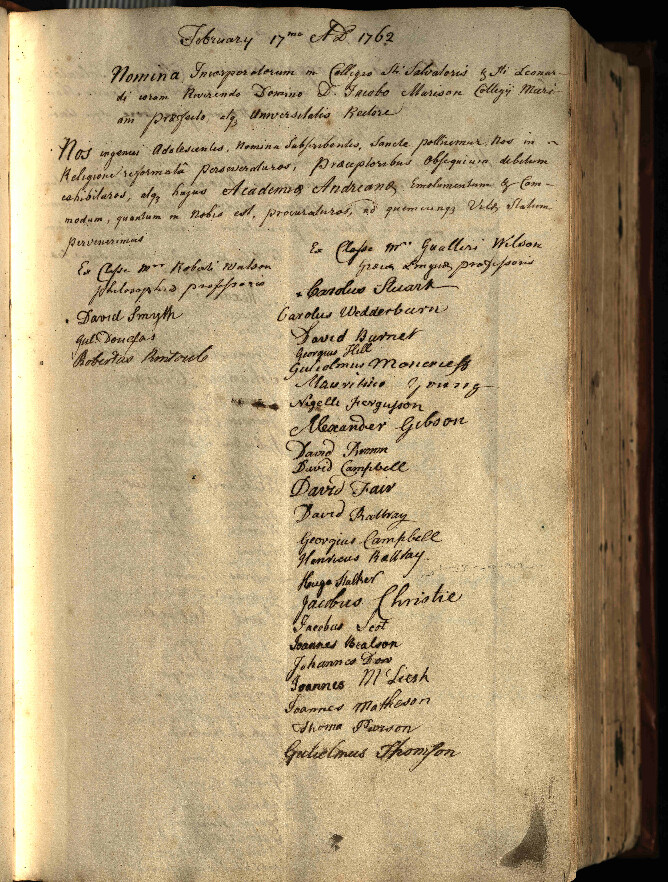 February 17mo AD 1762
Nomina Incorporatorum in Collegio Sti Salvatoris & Sti Leonar-
di coram Reverendo Domino D. Jacobo Murison Collegij Mari-
ani Præfecto, atq Universitatis Rectore
Nos ingenui Adolescentes, Nomina Subscribentes, Sancte pollicemur, Nos in
Religione reformatâ perseveraturos, Præceptoribus Obsequium debitum
exhibituros, atq hujus Academiæ Andreanæ, Emolumentum & Com-
modum, quantum in Nobis est, procuraturos, ad quemcunq Vitæ Statum
pervenerimus
Ex Classe mri Roberti Watson
philosophiæ professoris
David Smyth
Gul: Douglas
Robertus Rintoul
Ex Classe mri Gualteri Wilson
Græcæ Linguæ professoris
Carolus Stuart
Carolus Wedderburn
David Burnet
Georgius Hill
Gulielmus Moncrieff
Mauritius Young
Nigelli Ferguson
Alexander Gibson
David Brown
David Campbell
David Fair
David Rattray
Georgius Campbell
Henricus Rattray
Hugo
Jacobus Christie
Jacobus Scot
Joannes Beatson
Johannes Dow
Joannes McLiesh
Joannes Matheson
Thoma Pierson
Gulielmus Thomson